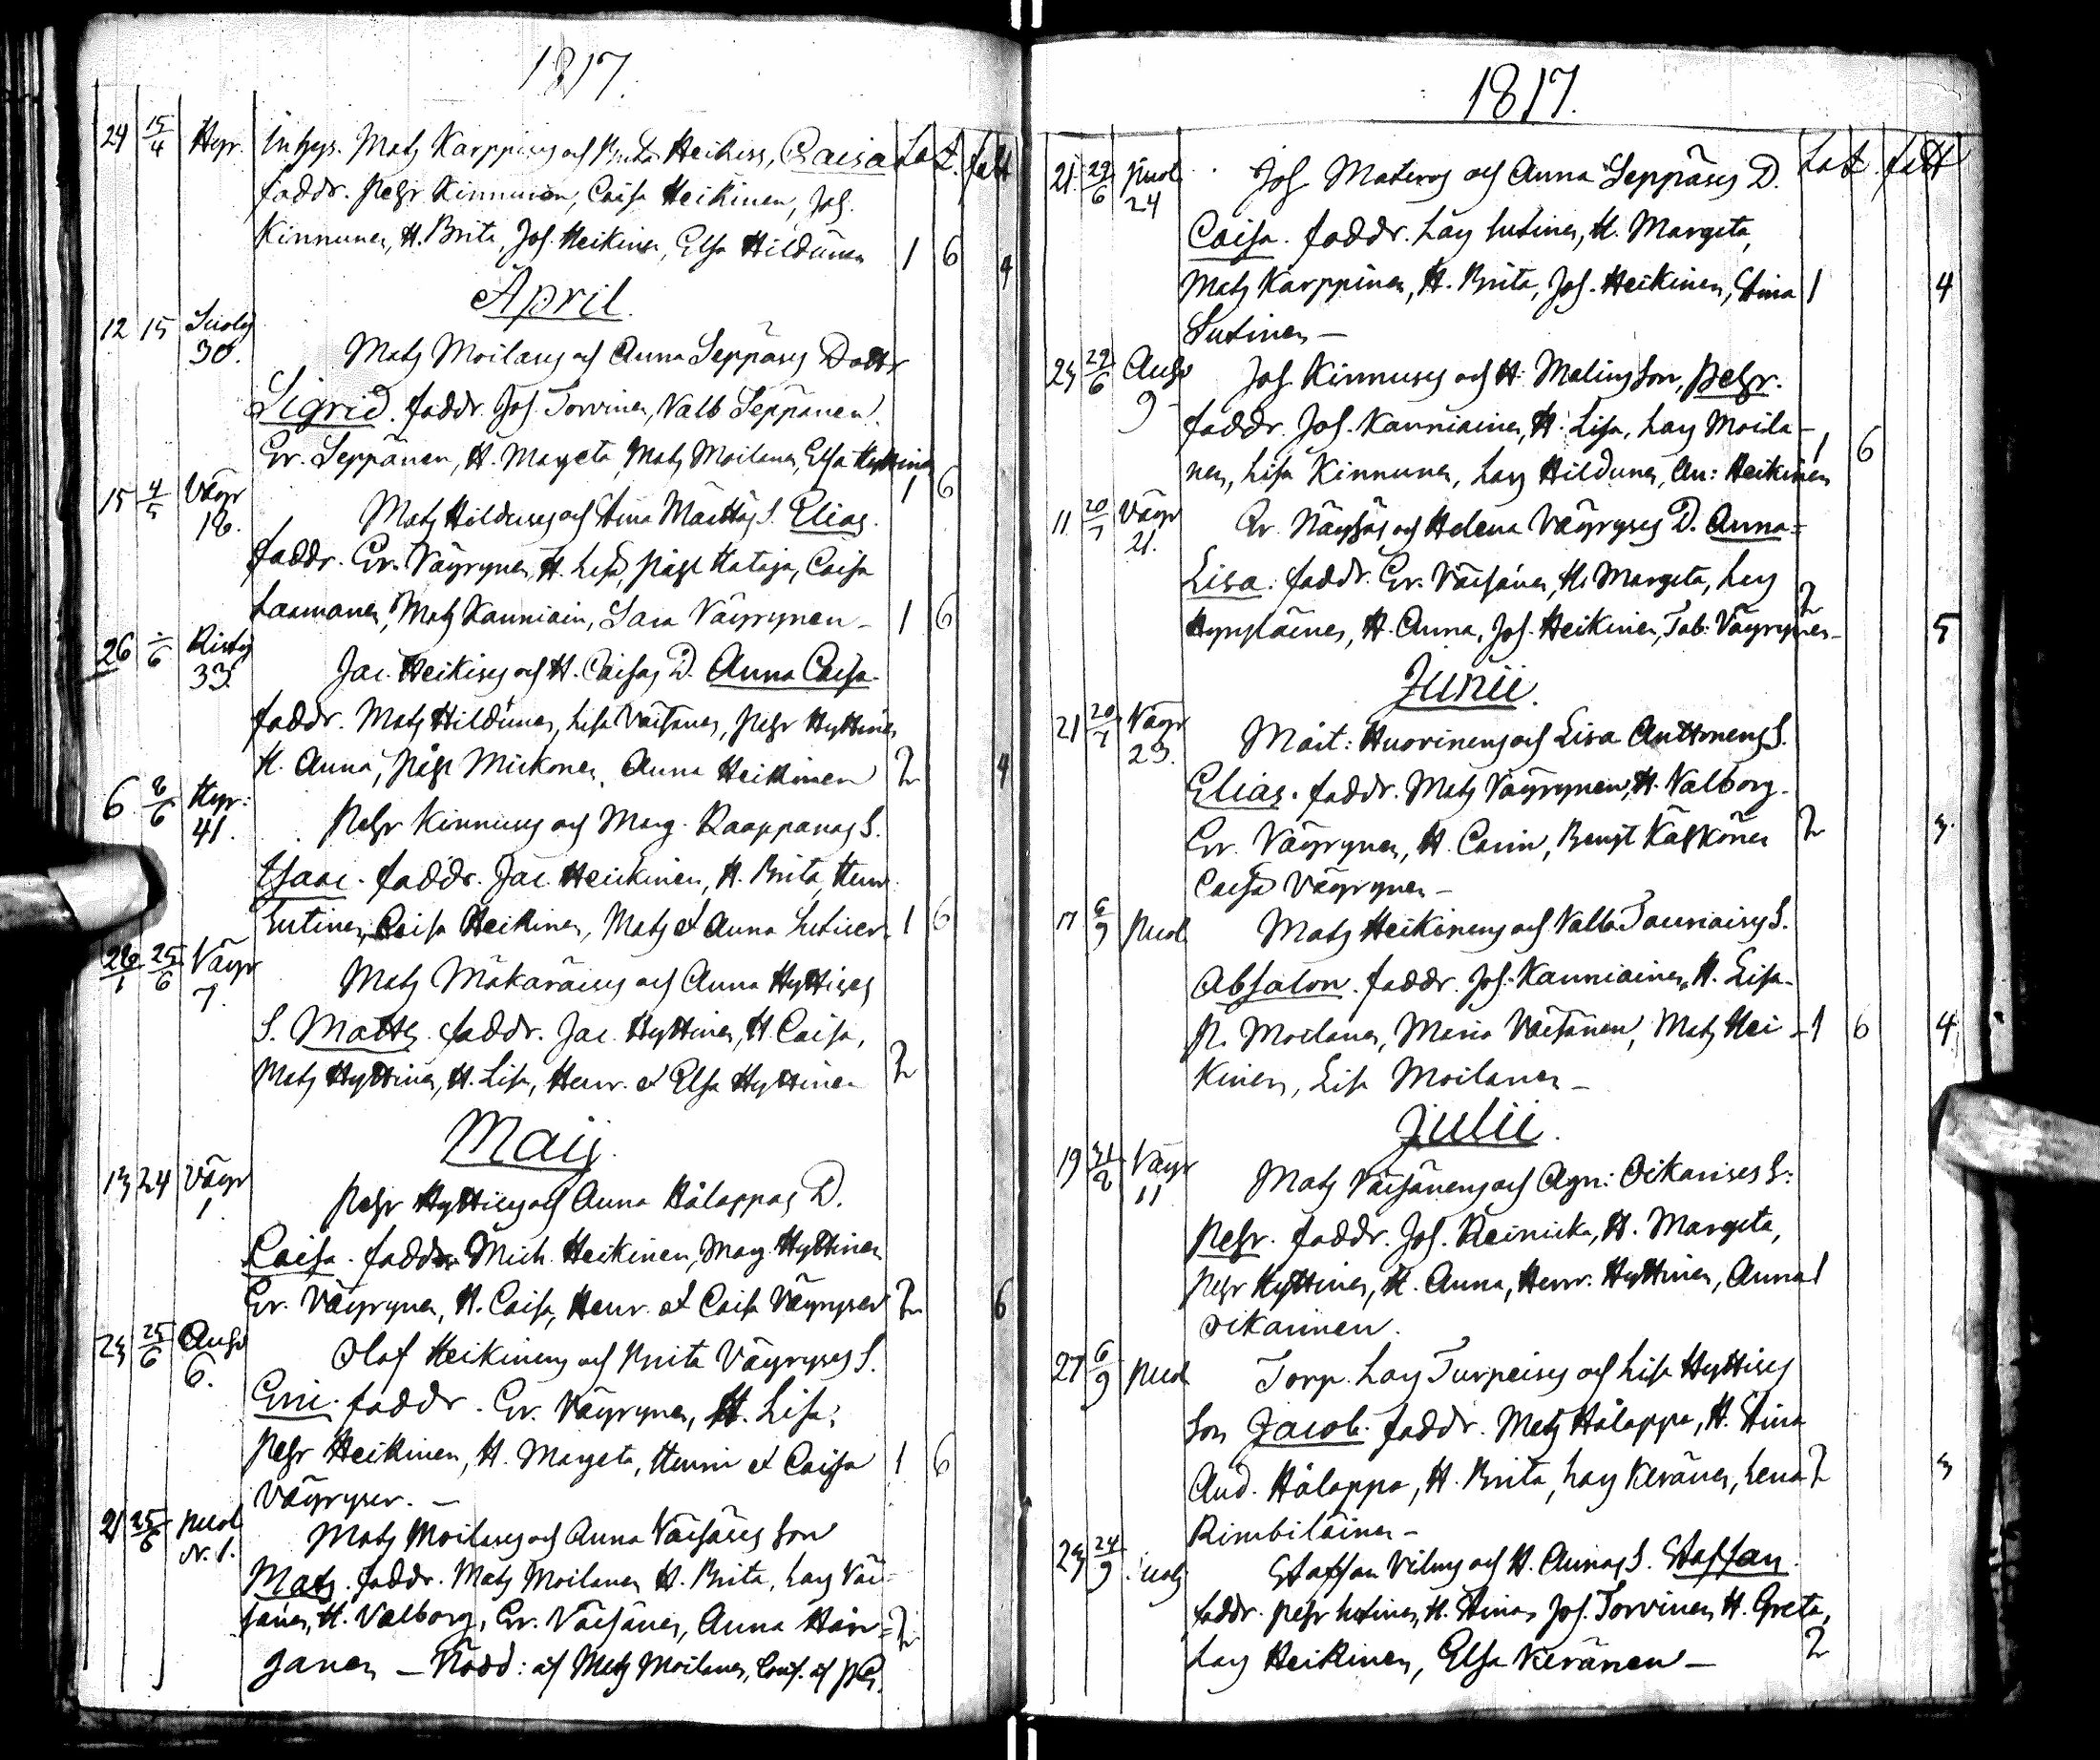 1817.
24 15/4 Hyr. Inhys. Matz Karppinens och Brita Heikins, Caisa Lod. fatt
faddr. Pehr Kinnunen, Caisa Heikinen, Joh.
Kinnunen, H. Brita, Joh. Heikinen, Elsa Hildunen 1 6 4
April.
12 15 Suolij 30. Matz Moilanens och Anna Seppänens Dotter
Sigrid. faddr. Joh. Torvinen, Valb Seppänen.
Er. Seppänen, H. Margeta, Matz Moilanen, Elsa 1 6
15 4/5 Väyr 18. Matz Hildunens och Stina Määttäs S. Elias.
faddr. Er. Väyrynen, H. Lisa, Påhl Kataja, Caisa
Laamanen, Matz Kanniain, Sara Väyrynen – 1 6
26 /6 Ristij 33. Jac. Heikinens och H. Caisas D. Anna Caisa.
faddr. Matz Hildunen, Lisa Väisänen, Pehr Hyttinen
H. Anna, Påhl Mickonen, Anna Heikinen 2 4
6 8/6 Hyr: 41. Pehr Kinnunens och Marg. Kaappanas S.
Isaac. faddr. Jac. Heikinen, H. Brita, Henr.
Lutinen, Caisa Heikinen, Matz et Anna Lutinen. 1 6
26/1 25/6 Väyr 7. Matz Mäkäräinens och Anna Hyttinens
S. Matts. faddr. Jac. Hyttinen, H. Caisa,
Matz Hyttinen, H. Lisa, Henr. et Elsa Hyttinen 2
Maij.
13 24 Väyr 1. Pehr Hyttinens och Anna Hålappas D.
Caisa. faddr. Mich. Heikinen, Marg. Hyttinen
Er. Väyrynen, H. Caisa, Henr. et Caisa Väyrynen 2 6
23 25/6 Anso 6. Olof Heikinens och Brita Väyrynens S.
Eric. faddr. Er. Väyrynen, H. Lisa,
Pehr Heikinen, H. Margeta, Henric et Caisa 1 6
Väyrynen. –
21 25/6 Puol N. 1. Matz Moilanens och Anna Väisänens Son
Matz. faddr. Matz Moilanen H. Brita, Lars Väi-
sänen, H. Valborg, Er. Väisänen, Anna Här= 2
janen – Nödd: af Matz Moilanen, Conf. af
1817.
21. 29/6 Puol 24 Joh Materos och Anna Seppänens D. Lod. fatt
Caisa. faddr. Lars Lutinen, H. Margeta,
Matz Karppinen, H. Brita, Joh. Heikinen, Stina 1 4
Lutinen –
23 29/6 Anso 9 Joh Kinnunens och H. Malins Son, Pehr.
faddr. Joh. Kanniainen, H. Lisa, Lars Moila-
nen, Lisa Kinnunen, Lars Hildunen, An: Heikinen 1 6
11 20/7 Väyr 21. Er. och Helena Väyrynens D. Anna=
Lisa. faddr. Er. Väisänen, H. Margeta, Lars
Hyryläinen, H. Anna, Joh. Heikinen, Tob. Väyrynen – 2 5
Junii.
21 20/7 Väyr 23. Mårt: Huovinens och Lisa Anttonens S.
Elias. faddr. Matz Väyrynen, H. Valborg.
Er. Väyrynen, H. Carin, Bengt Kåskönen 2 3.
Caisa Väyrynen –
17 6/9 Puol Matz Heikinens och Valb. Tauriainens S.
Absalon. faddr. Joh. Kanniainen, H. Lisa.
P. Moilanen, Maria Väisänen, Matz Hei- 1 6 4
kinen, Lisa Moilanen –
Julii.
19 31/8 Väyr 11 Matz Väisänens och Agn: Oikarinens S:
Pehr. faddr. Joh. Keinicka, H. Margeta,
Pehr Hyttinen, H. Anna, Henr. Hyttinen, Anna 1
Oikarinen.
27 6/9 Puol Torp. Lars Turpeinens och Lisa Hyttinens
Son Jacob. faddr. Matz Hålappa, H. Stina
And. Hålappa, H. Brita, Lars Keränen, Lena 2 3
Rimbiläinen –
23 24/9 Suolij Staffan Vilmins och H. Annas S. Staffan.
faddr. Pehr Lutinen, H. Stina, Joh. Torvinen, H. Greta,
Lars Heikinen, Elsa Keränen – 2